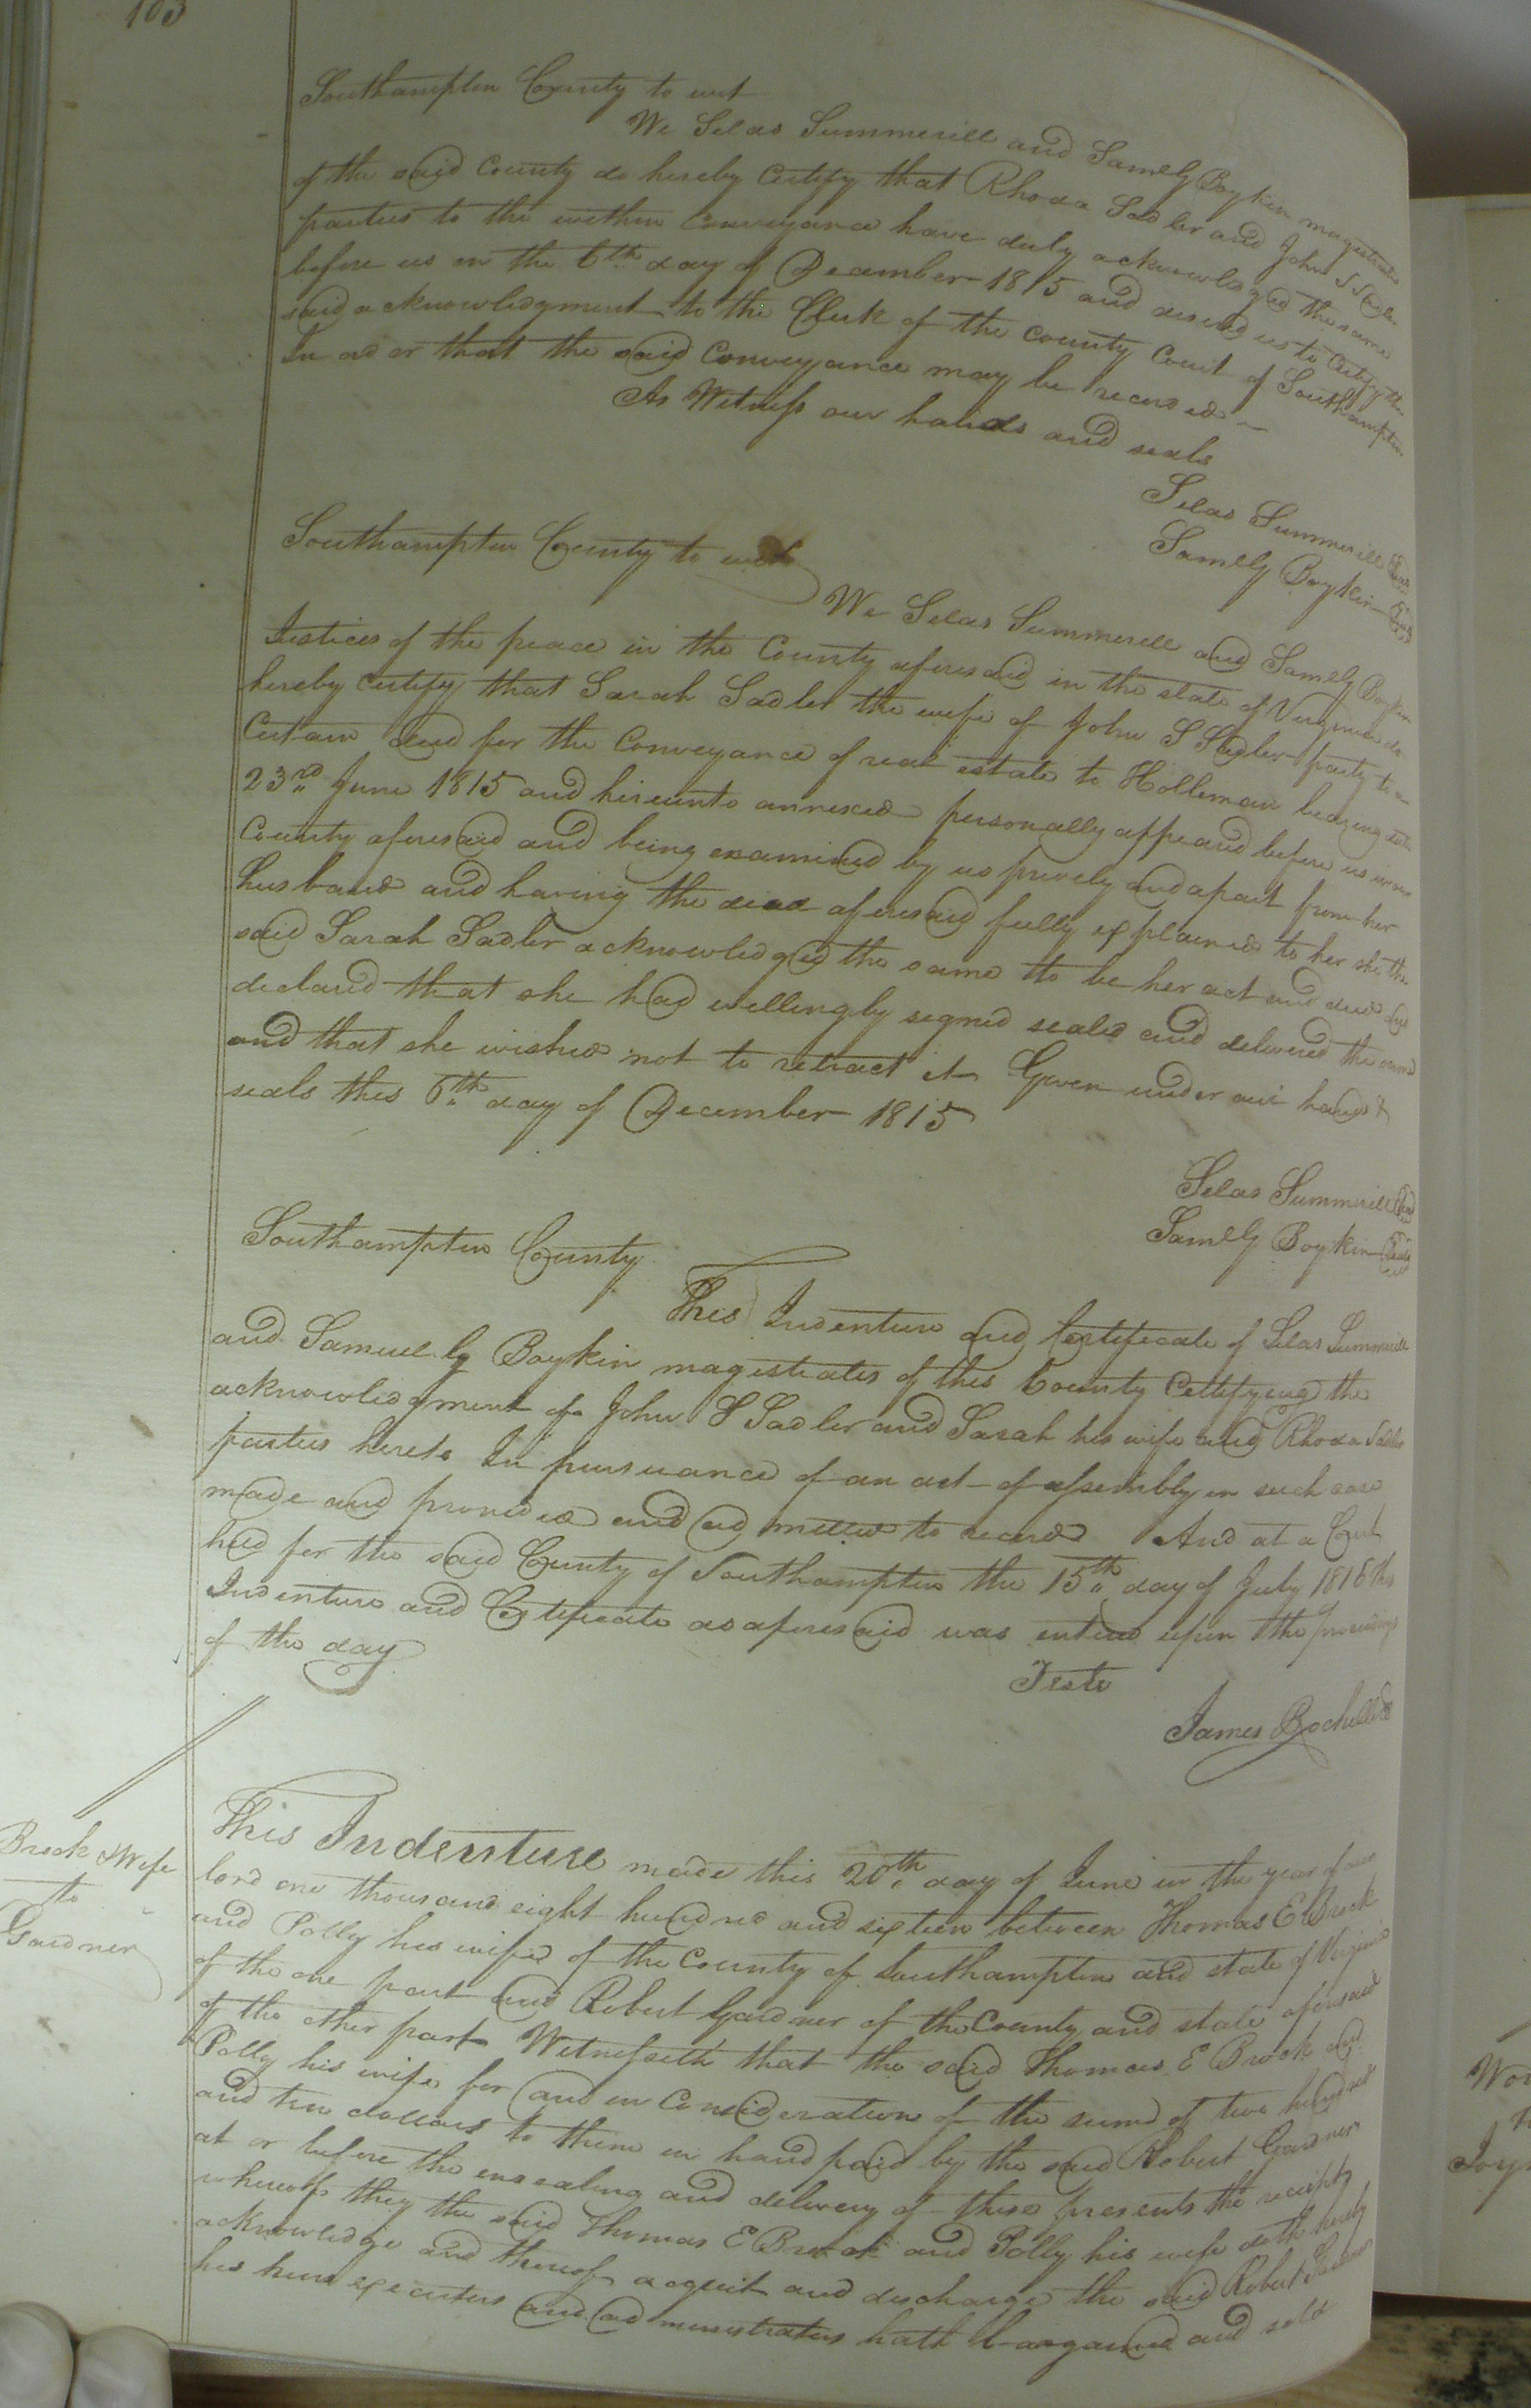 103
Southampton County to wit
We Silas Summerill and Samlg Boykin magistrates
of the said County do hereby Certify that Rhoda Sadler and John S Sadler
parties to the within Conveyance have duly acknowledged the same
before us on the 6th day of December 1815 and desired us to Certify the
said acknowledgment to the Clerk of the County Court of Southampton
In order that the said Conveyance may be recorded
As Witness our hands and seals
Silas Summerill Seal
Samlg Boykin Seal
Southampton County to wit
We Silas Summerill and Samlg Boykin
Justices of the peace in the County aforesaid in the state of Virginia do
hereby Certify that Sarah Sadler the wife of John S Sadler party to a
Certain deed for the Conveyance of real estate to Holleman bearing date
23rd June 1815 and hereunto annexed personally appeard before us in our
County aforesaid and being examined by us privily and apart from her
husband and having the deed aforesaid fully explained to her she the
said Sarah Sadler acknowledged the same to be her act and deed and
declared that she had willingly signed sealed and delivered the same
and that she wished not to retract it Given under our hands &
seals this 6th day of December 1815
Silas Summerill Seal
Samlg Boykin Seal
Southampton County
This Indenture and Certificate of Silas Summerill
and Samuel g Boykin magistrates of this County Certifying the
acknowledgment of John S Sadler and Sarah his wife and Rhoda Sadler
parties hereto In pursuance of an act of assembly in such case
made and provided and admitted to record And at a Court
held for the said County of Southampton the 15th day of July 1816 this
Indenture and Certificate as aforesaid was entered upon the proceedings
of the day
Teste
James Rochelle
Brock & Wife
to
Gardner
This Indenture made this 20th day of June in the year of our
lord one thousand eight hundred and sixteen between Thomas E Brock
and Polly his wife of the County of Southampton and state of Virginia
of the one part and Robert Gardner of the County and state aforesaid
of the other part Witnesseth that the said Thomas E Brock and
Polly his wife for and in Consideration of the sum of two hundred
and ten dollars to them in hand paid by the said Robert Gardner
at or before the ensealing and delivery of these presents the receipt
whereof they the said Thomas E Brock and Polly his wife doth hereby
acknowledge and thereof acquit and discharge the said Robert Gardner
his heirs executors and administrators hath bargained and sold